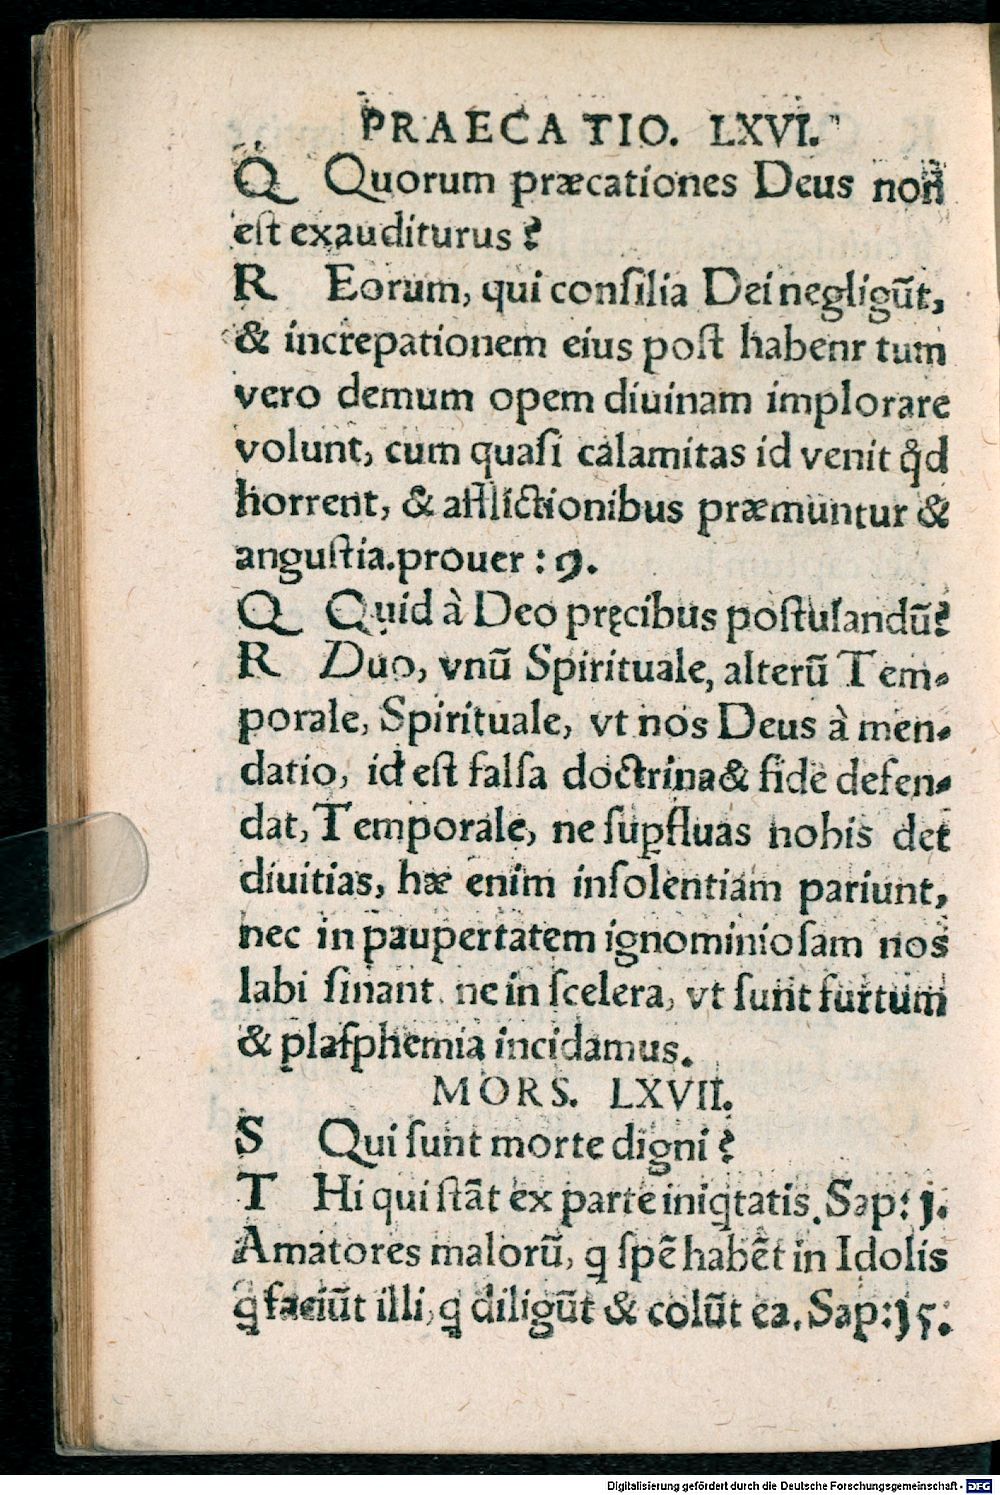 PRAECATIO. LXVI.
Q Quorum præcationes Deus non
eſt exauditurus?
R Eorum, qui conſilia Dei negligũt,
& increpationem eius poſt habenr tum
vero demum opem diuinam implorare
volunt, cum quaſi calamitas id venit qͦd
horrent, & afflictionibus præmuntur &
anguſtia. prouer: 9.
Q Quid à Deo pręcibus poſtulandũ?
R Duo, vnũ Spirituale, alterũ Tem-
porale, Spirituale, vt nos Deus à men-
datio, id eſt falſa doctrina & fide defen-
dat, Temporale, ne ſuꝑfluas nobis det
diuitias, hæ enim inſolentiam pariunt,
nec in paupertatem ignominioſam nos
labi ſinant. ne in ſcelera, vt ſunt furtum
& plaſphemia incidamus.
MORS. LXVII.
S Qui ſunt morte digni?
T Hi qui ſtãt ex parte iniqtatis. Sap: 1.
Amatores malorũ, q ſpẽ habẽt in Idolis
q faciũt illi, q diligũt & colũt ea. Sap: 15.
Digitalisierung gefördert durch die Deutsche Forschungsgemeinschaft - DFG